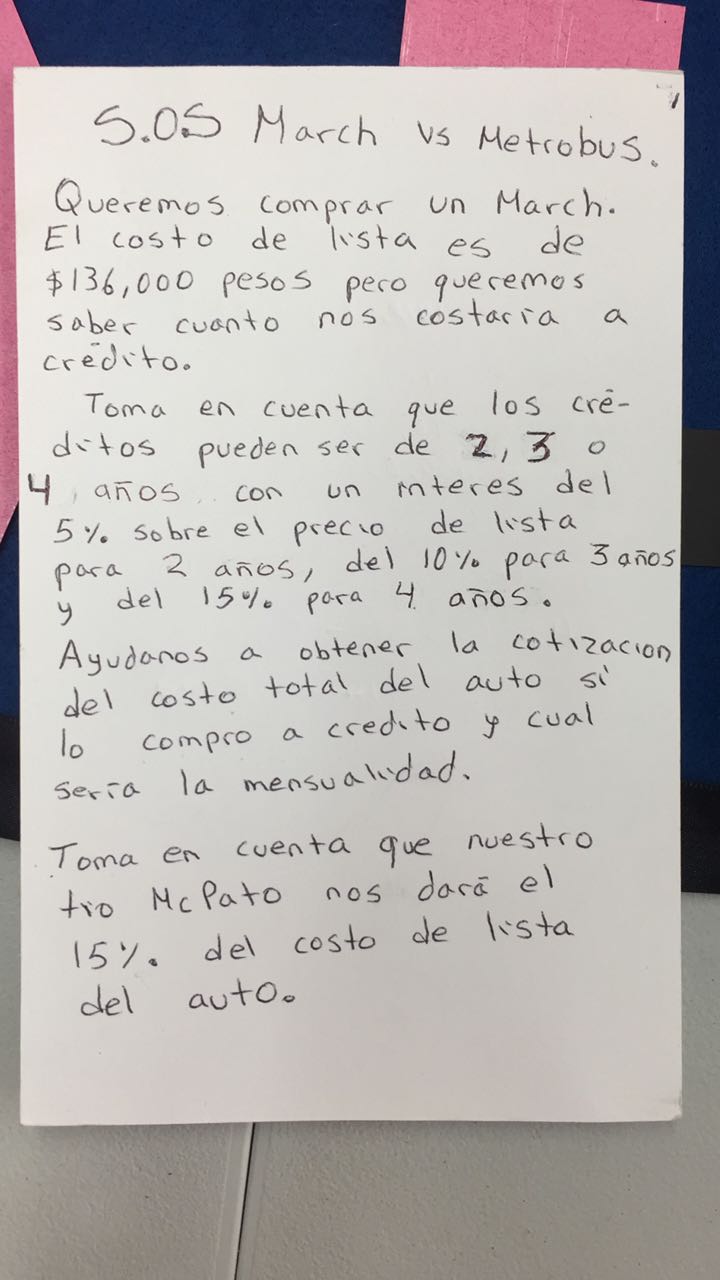 S.OS March vs Metrobus.
Queremos comprar un March.
El costo de lista es de
$136,000 pesos pero queremos
saber cuanto nos costaría a
crédito.
Toma en cuenta que los cré-
ditos pueden ser de 2, 3 o
4 años con un interes del
5% sobre el precio de lista
para 2 años, del 10% para 3 años
y del 15% para 4 años.
Ayudanos a obtener la cotizacion
del costo total del auto si
lo compro a credito y cual
sería la mensualidad.
Toma en cuenta que nuestro
tío McPato nos dará el
15%. del costo de lista
del auto.